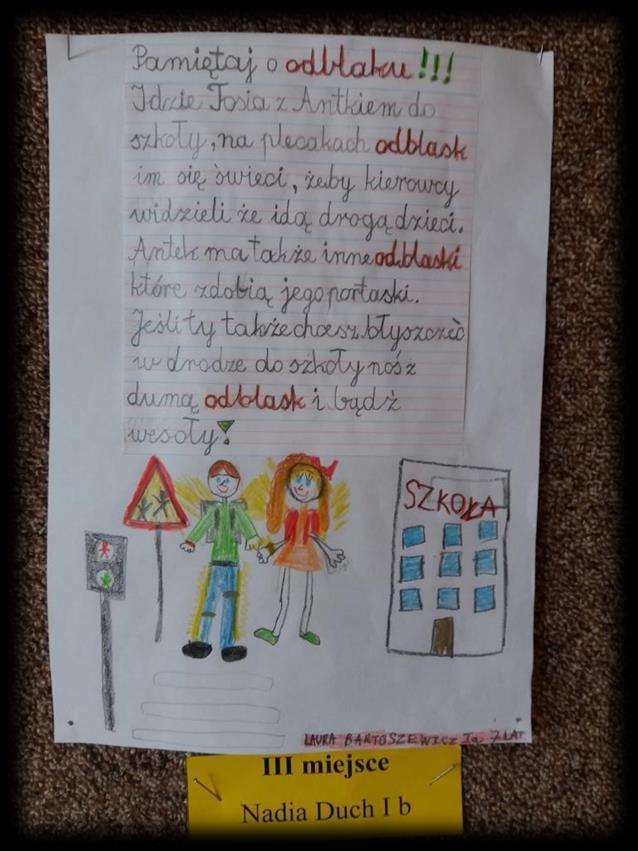 Pamiętaj o odblaku!!!
Idzie Tosia z Antkiem do
szkoły, na plecakach odblask
im się świeci, żeby kierowcy
widzieli że idą drogą dzieci.
Antek ma także inne odblaski
które zdobią jego portaski.
Jeśli ty także chcesz błyszczeć
w drodze do szkoły noś z
dumą odblask i bądź
wesoły!
SZKOŁA
LAURA BARTOSZEWICZ Ia, 7 LAT
III miejsce
Nadia Duch I b